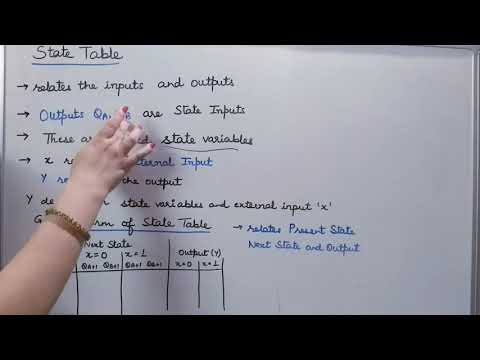 State Table
→ relates the inputs and outputs
→ Outputs QA, QB are State Inputs
→ These are state variables
→ x External Input
Y the output
Y state variables and external input 'x'
of State Table → relates Present State
Next State and Output
Next State Output (Y)
x=0 x=1 x=0 x=1
QA+1 QB+1 QA+1 QB+1